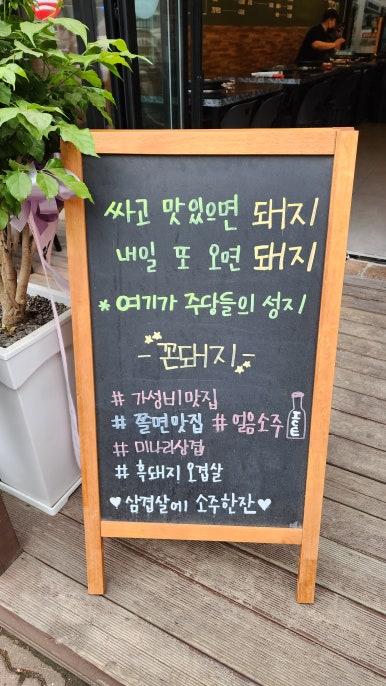 싸고 맛있으면 돼지
내일 또 오면 돼지
* 여기가 주당들의 성지
- 꼰돼지 -
# 가성비맛집
# 쫄면맛집 # 얼음소주
ICE
# 미나리삼겹
# 흑돼지 오겹살
♥삼겹살에 소주한잔♥